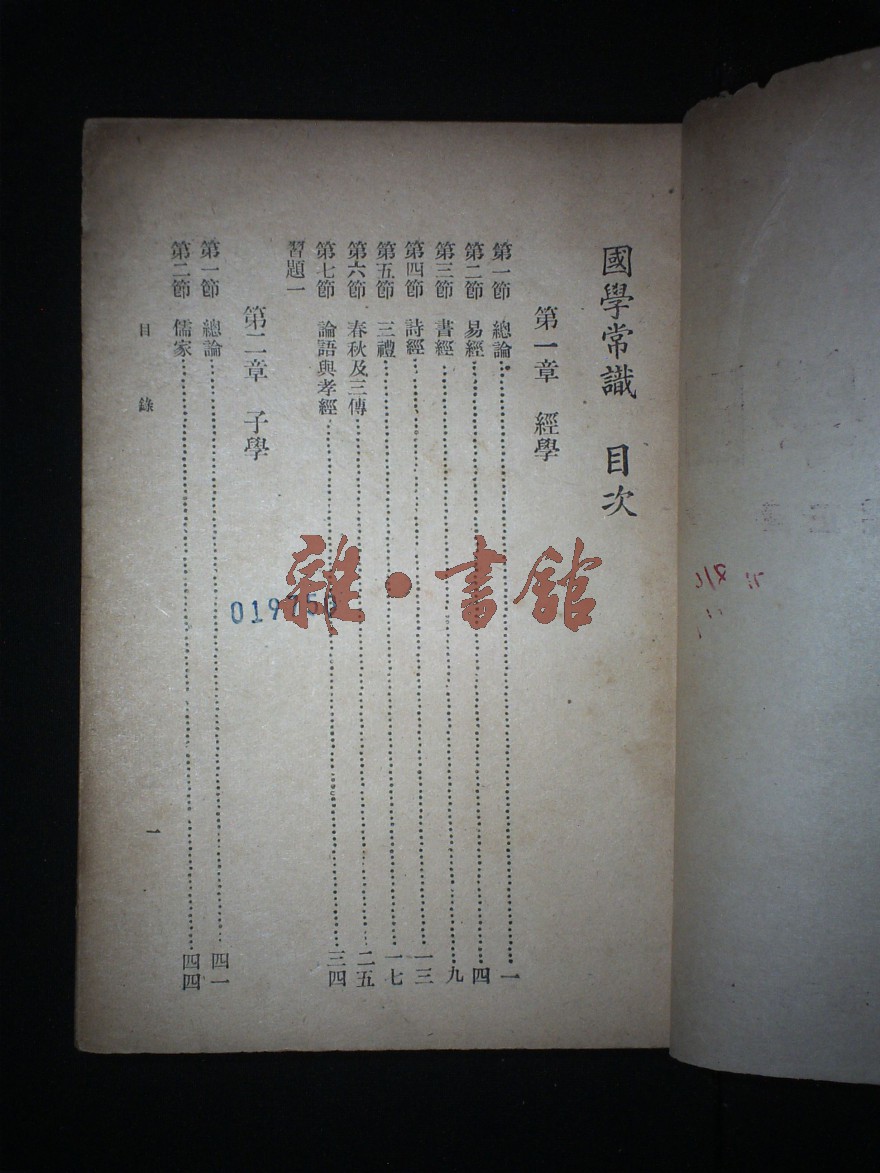 國學常識　目次
第一章　經學
第一節　總論……一
第二節　易經……四
第三節　書經……九
第四節　詩經……一三
第五節　三禮……一七
第六節　春秋及三傳……二五
第七節　論語與孝經……三四
習題一
第二章　子學
第一節　總論……四一
第二節　儒家……四四
目錄
一
雜·書館